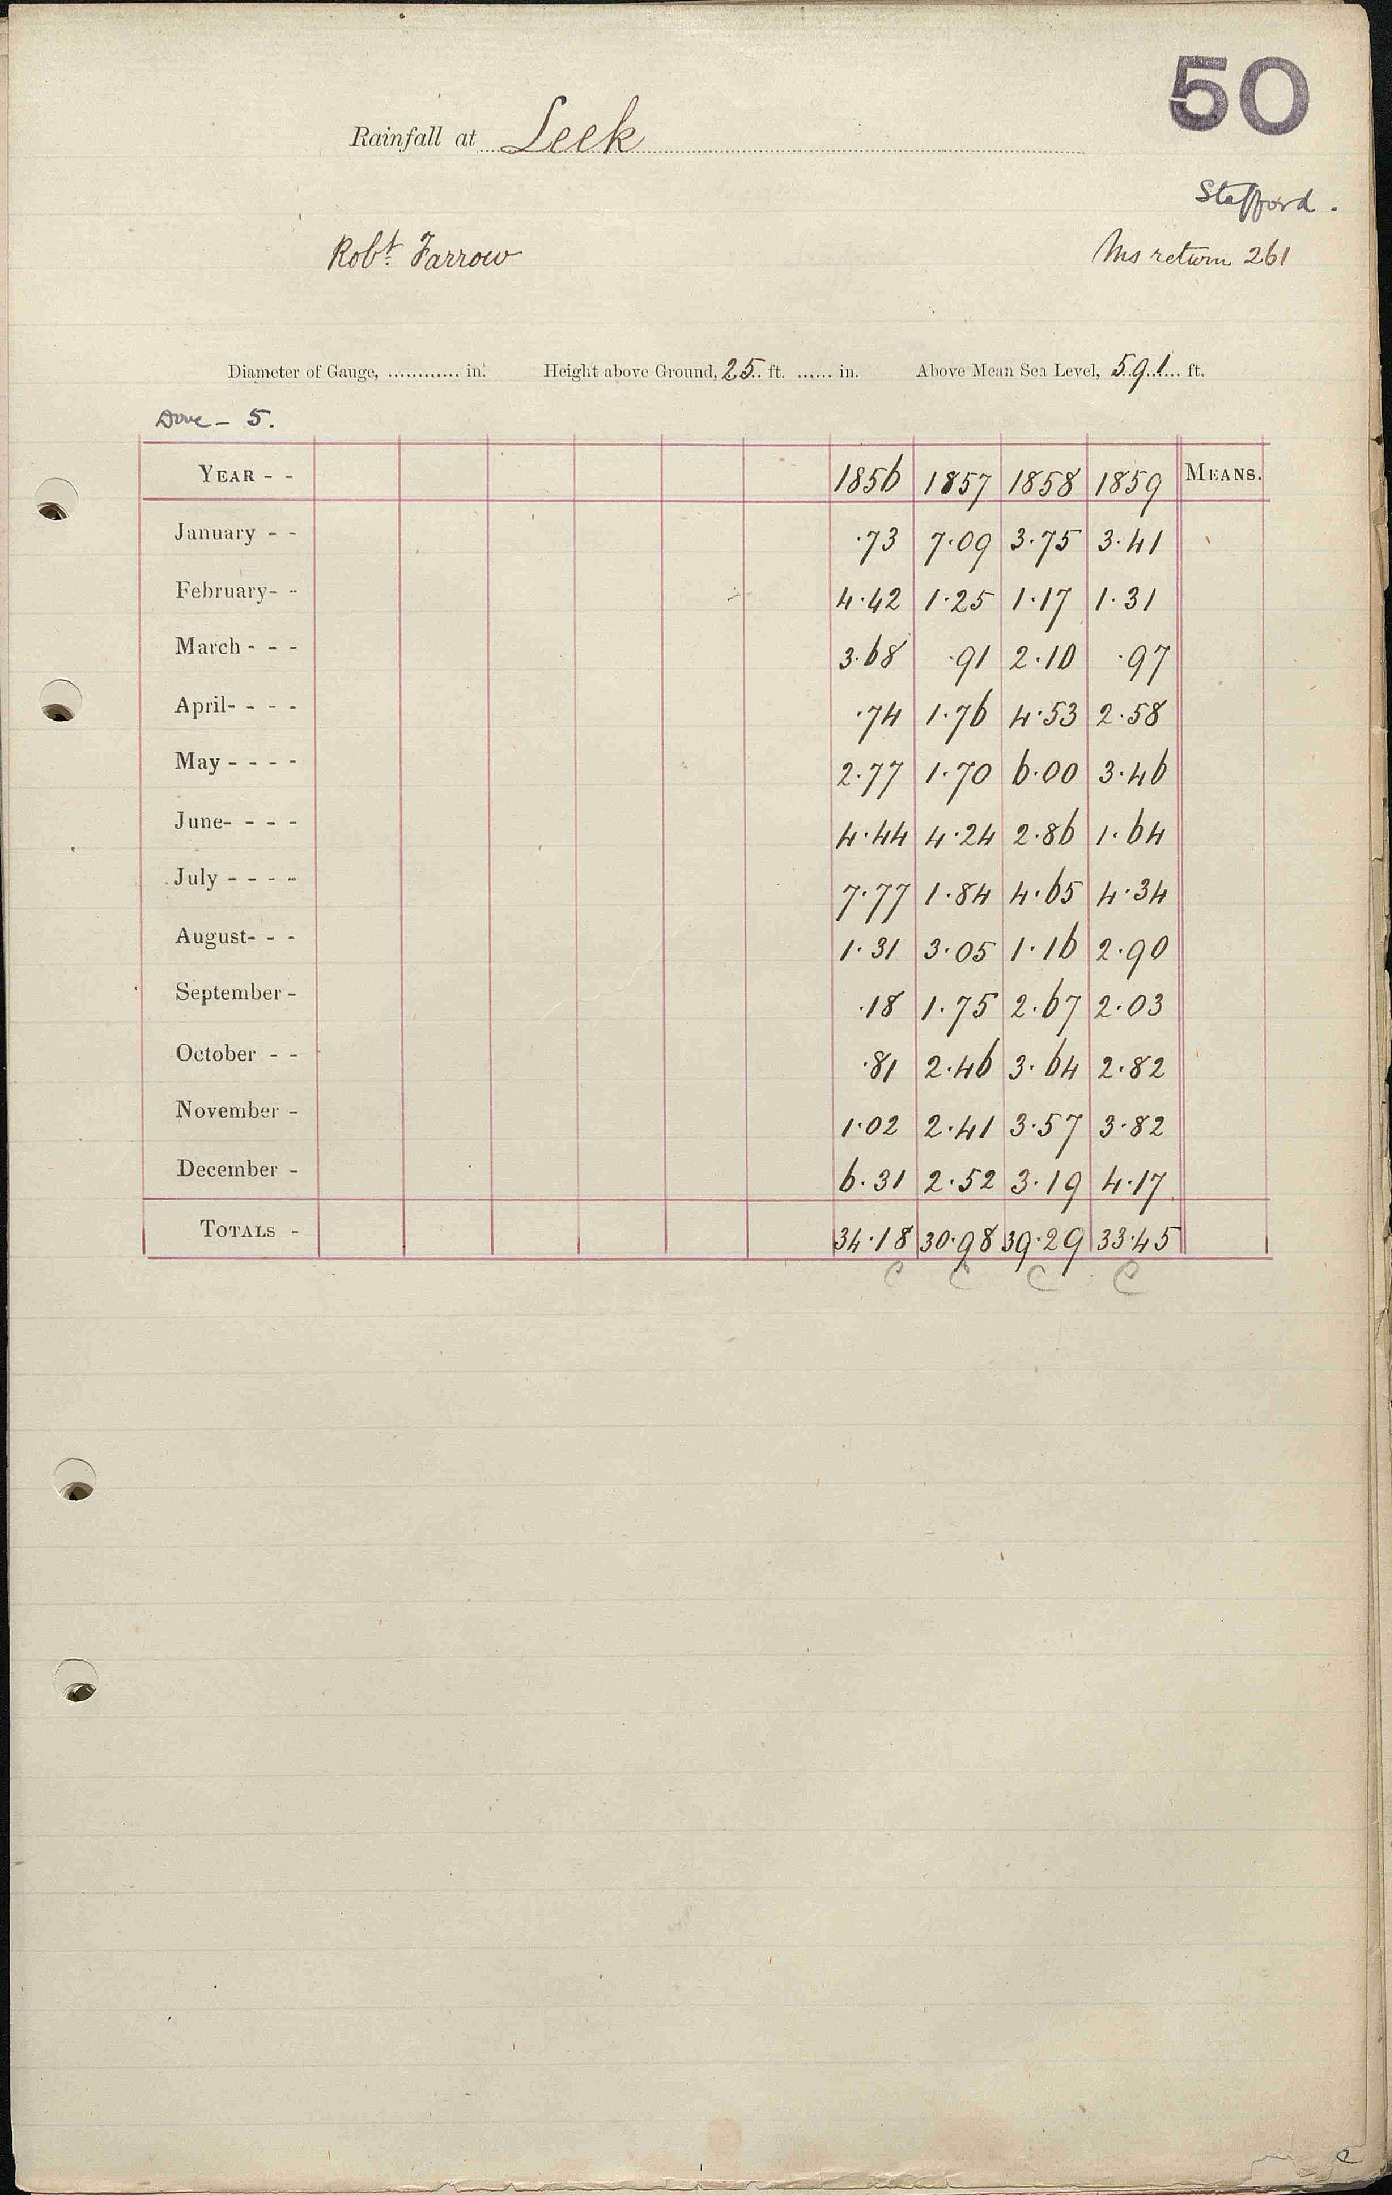 50
Rainfall at Leek
Stafford.
Robt. Farrow Ms return 261
Diameter of Gauge, ............ in. Height above Ground, 25 ft. ...... in. Above Mean Sea Level, 591 ft.
Dove - 5.
YEAR - - 1856 1857 1858 1859 MEANS.
January - - .73 7.09 3.75 3.41
February- - 4.42 1.25 1.17 1.31
March - - - 3.68 .91 2.10 .97
April- - - - .74 1.76 4.53 2.58
May - - - - 2.77 1.70 6.00 3.46
June- - - - 4.44 4.24 2.86 1.64
July - - - - 7.77 1.84 4.65 4.34
August- - - 1.31 3.05 1.16 2.90
September - .18 1.75 2.67 2.03
October - - .81 2.46 3.64 2.82
November - 1.02 2.41 3.57 3.82
December - 6.31 2.52 3.19 4.17
TOTALS - 34.18 30.98 39.29 33.45
C C C C